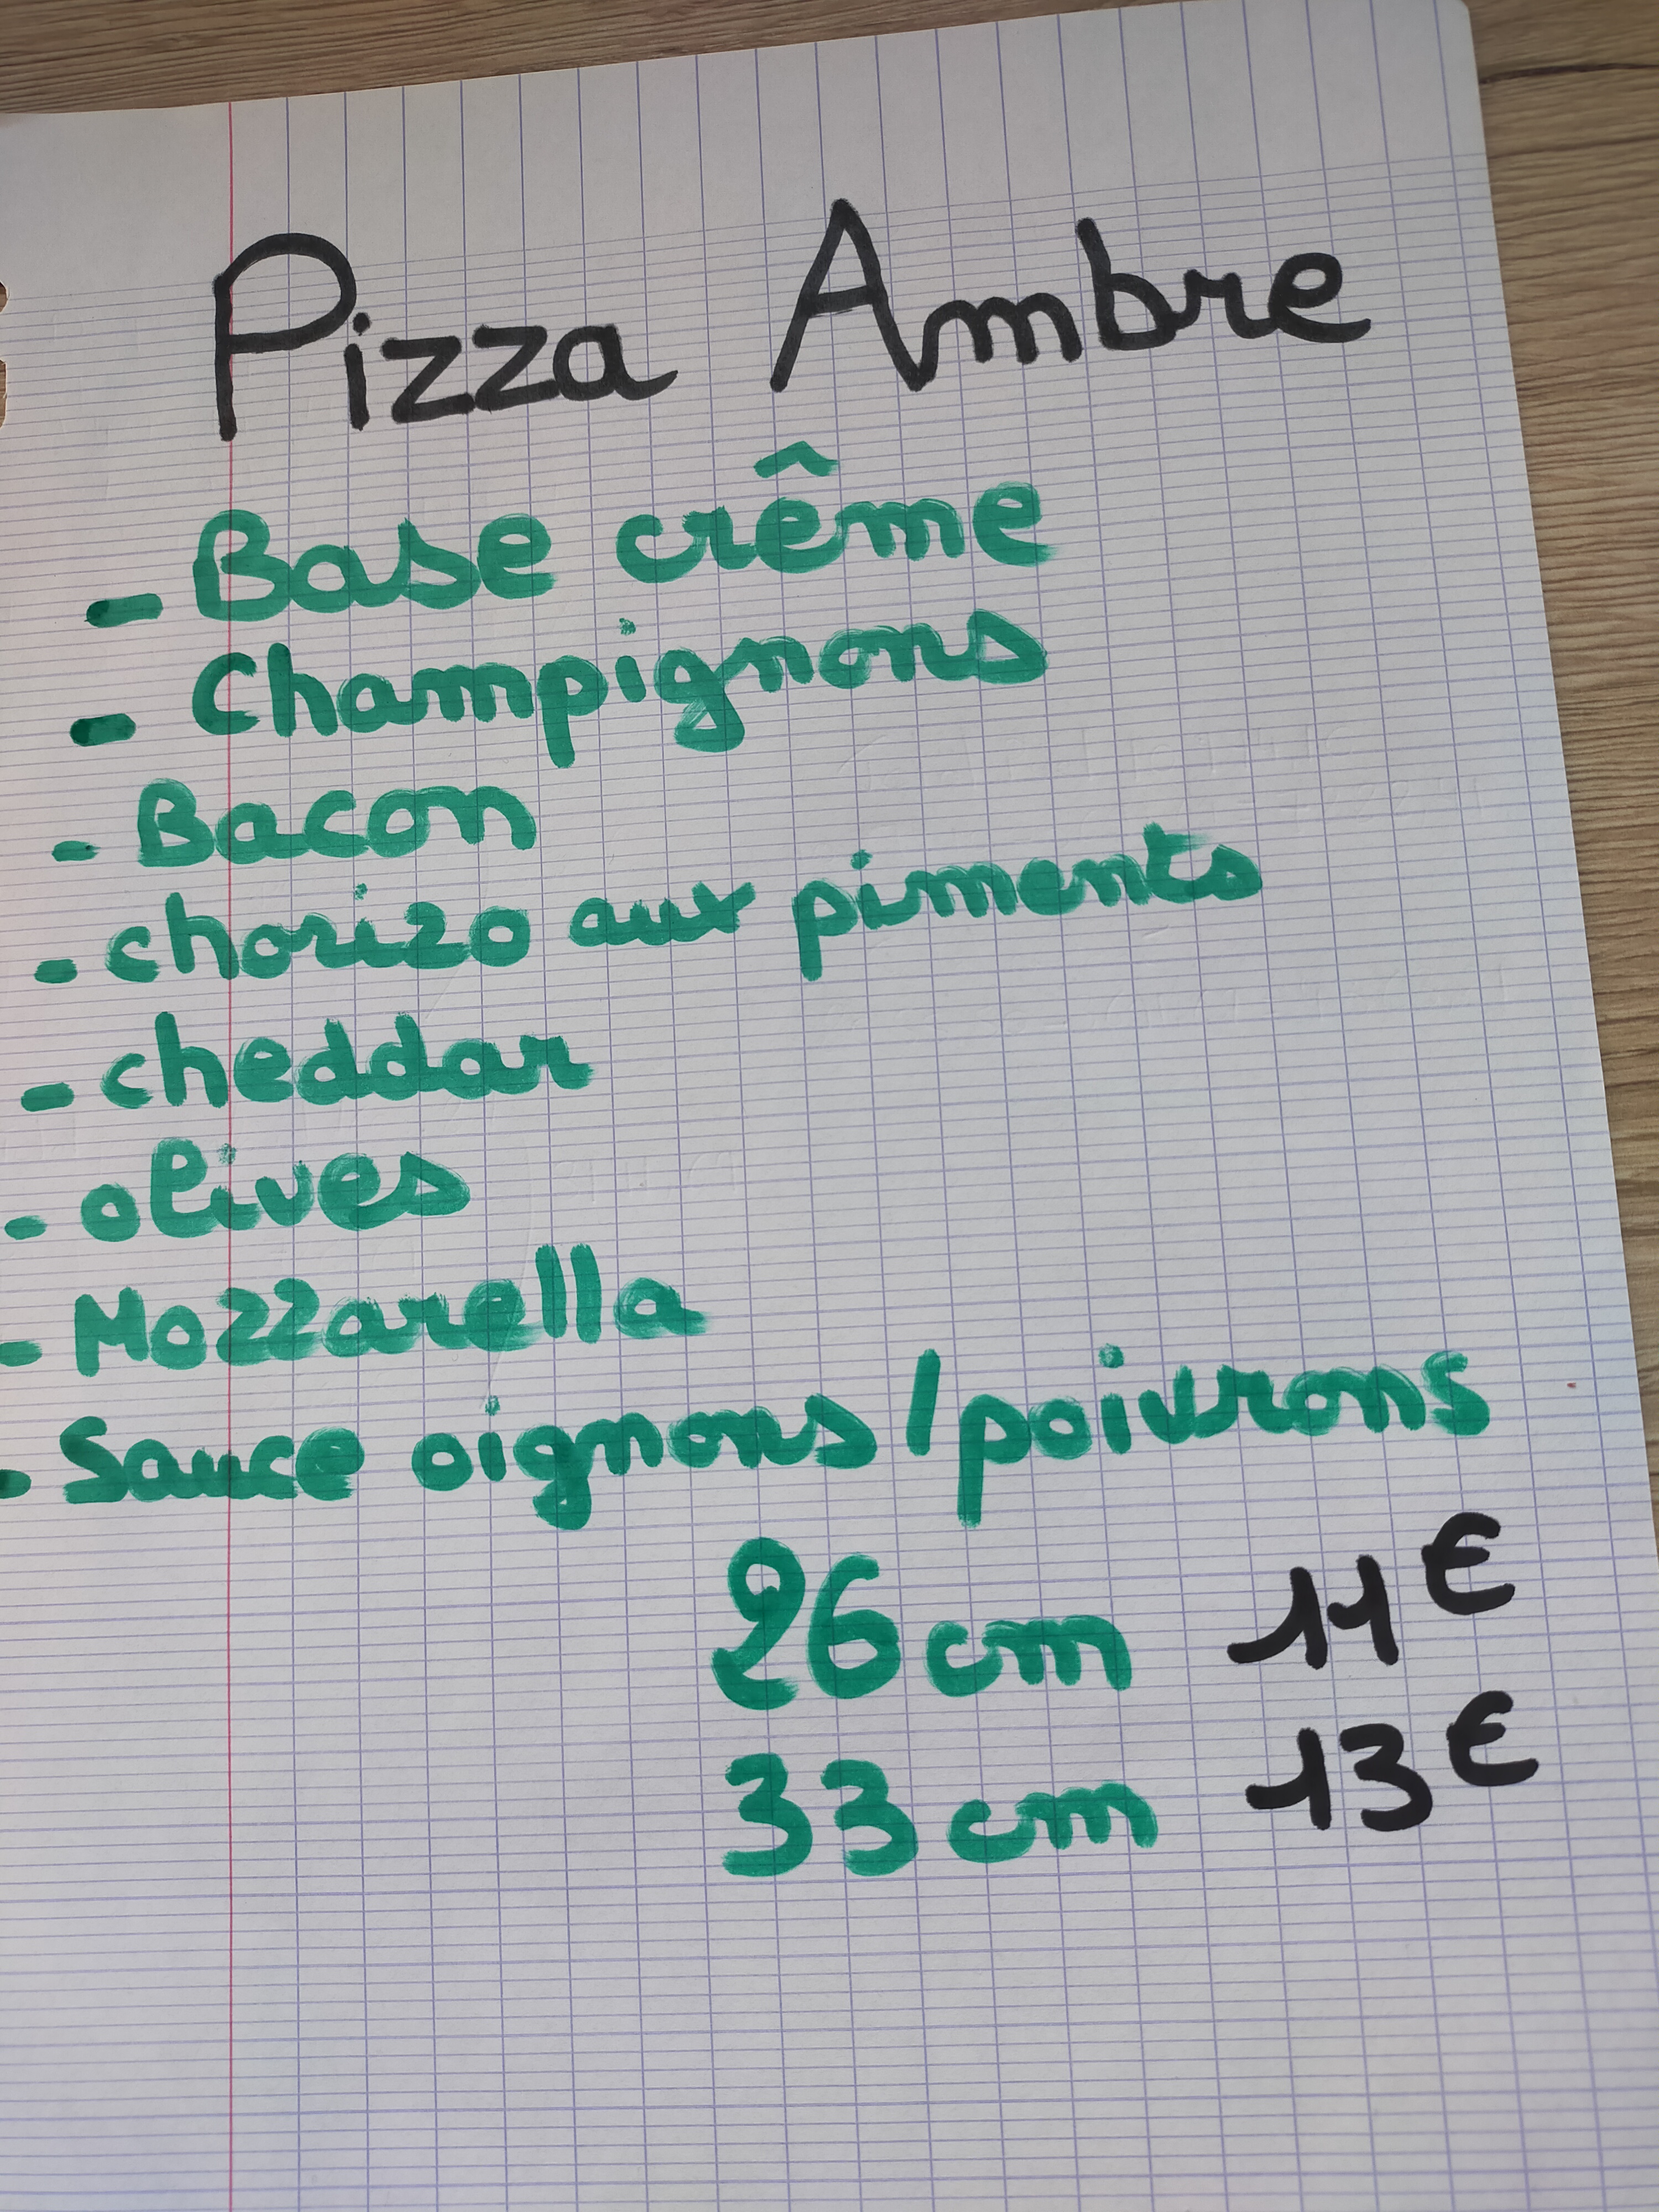 Pizza Ambre
- Base crême
- Champignons
- Bacon
- chorizo aux piments
- cheddar
- olives
- Mozzarella
- Sauce oignons / poivrons
26 cm 11€
33 cm 13€